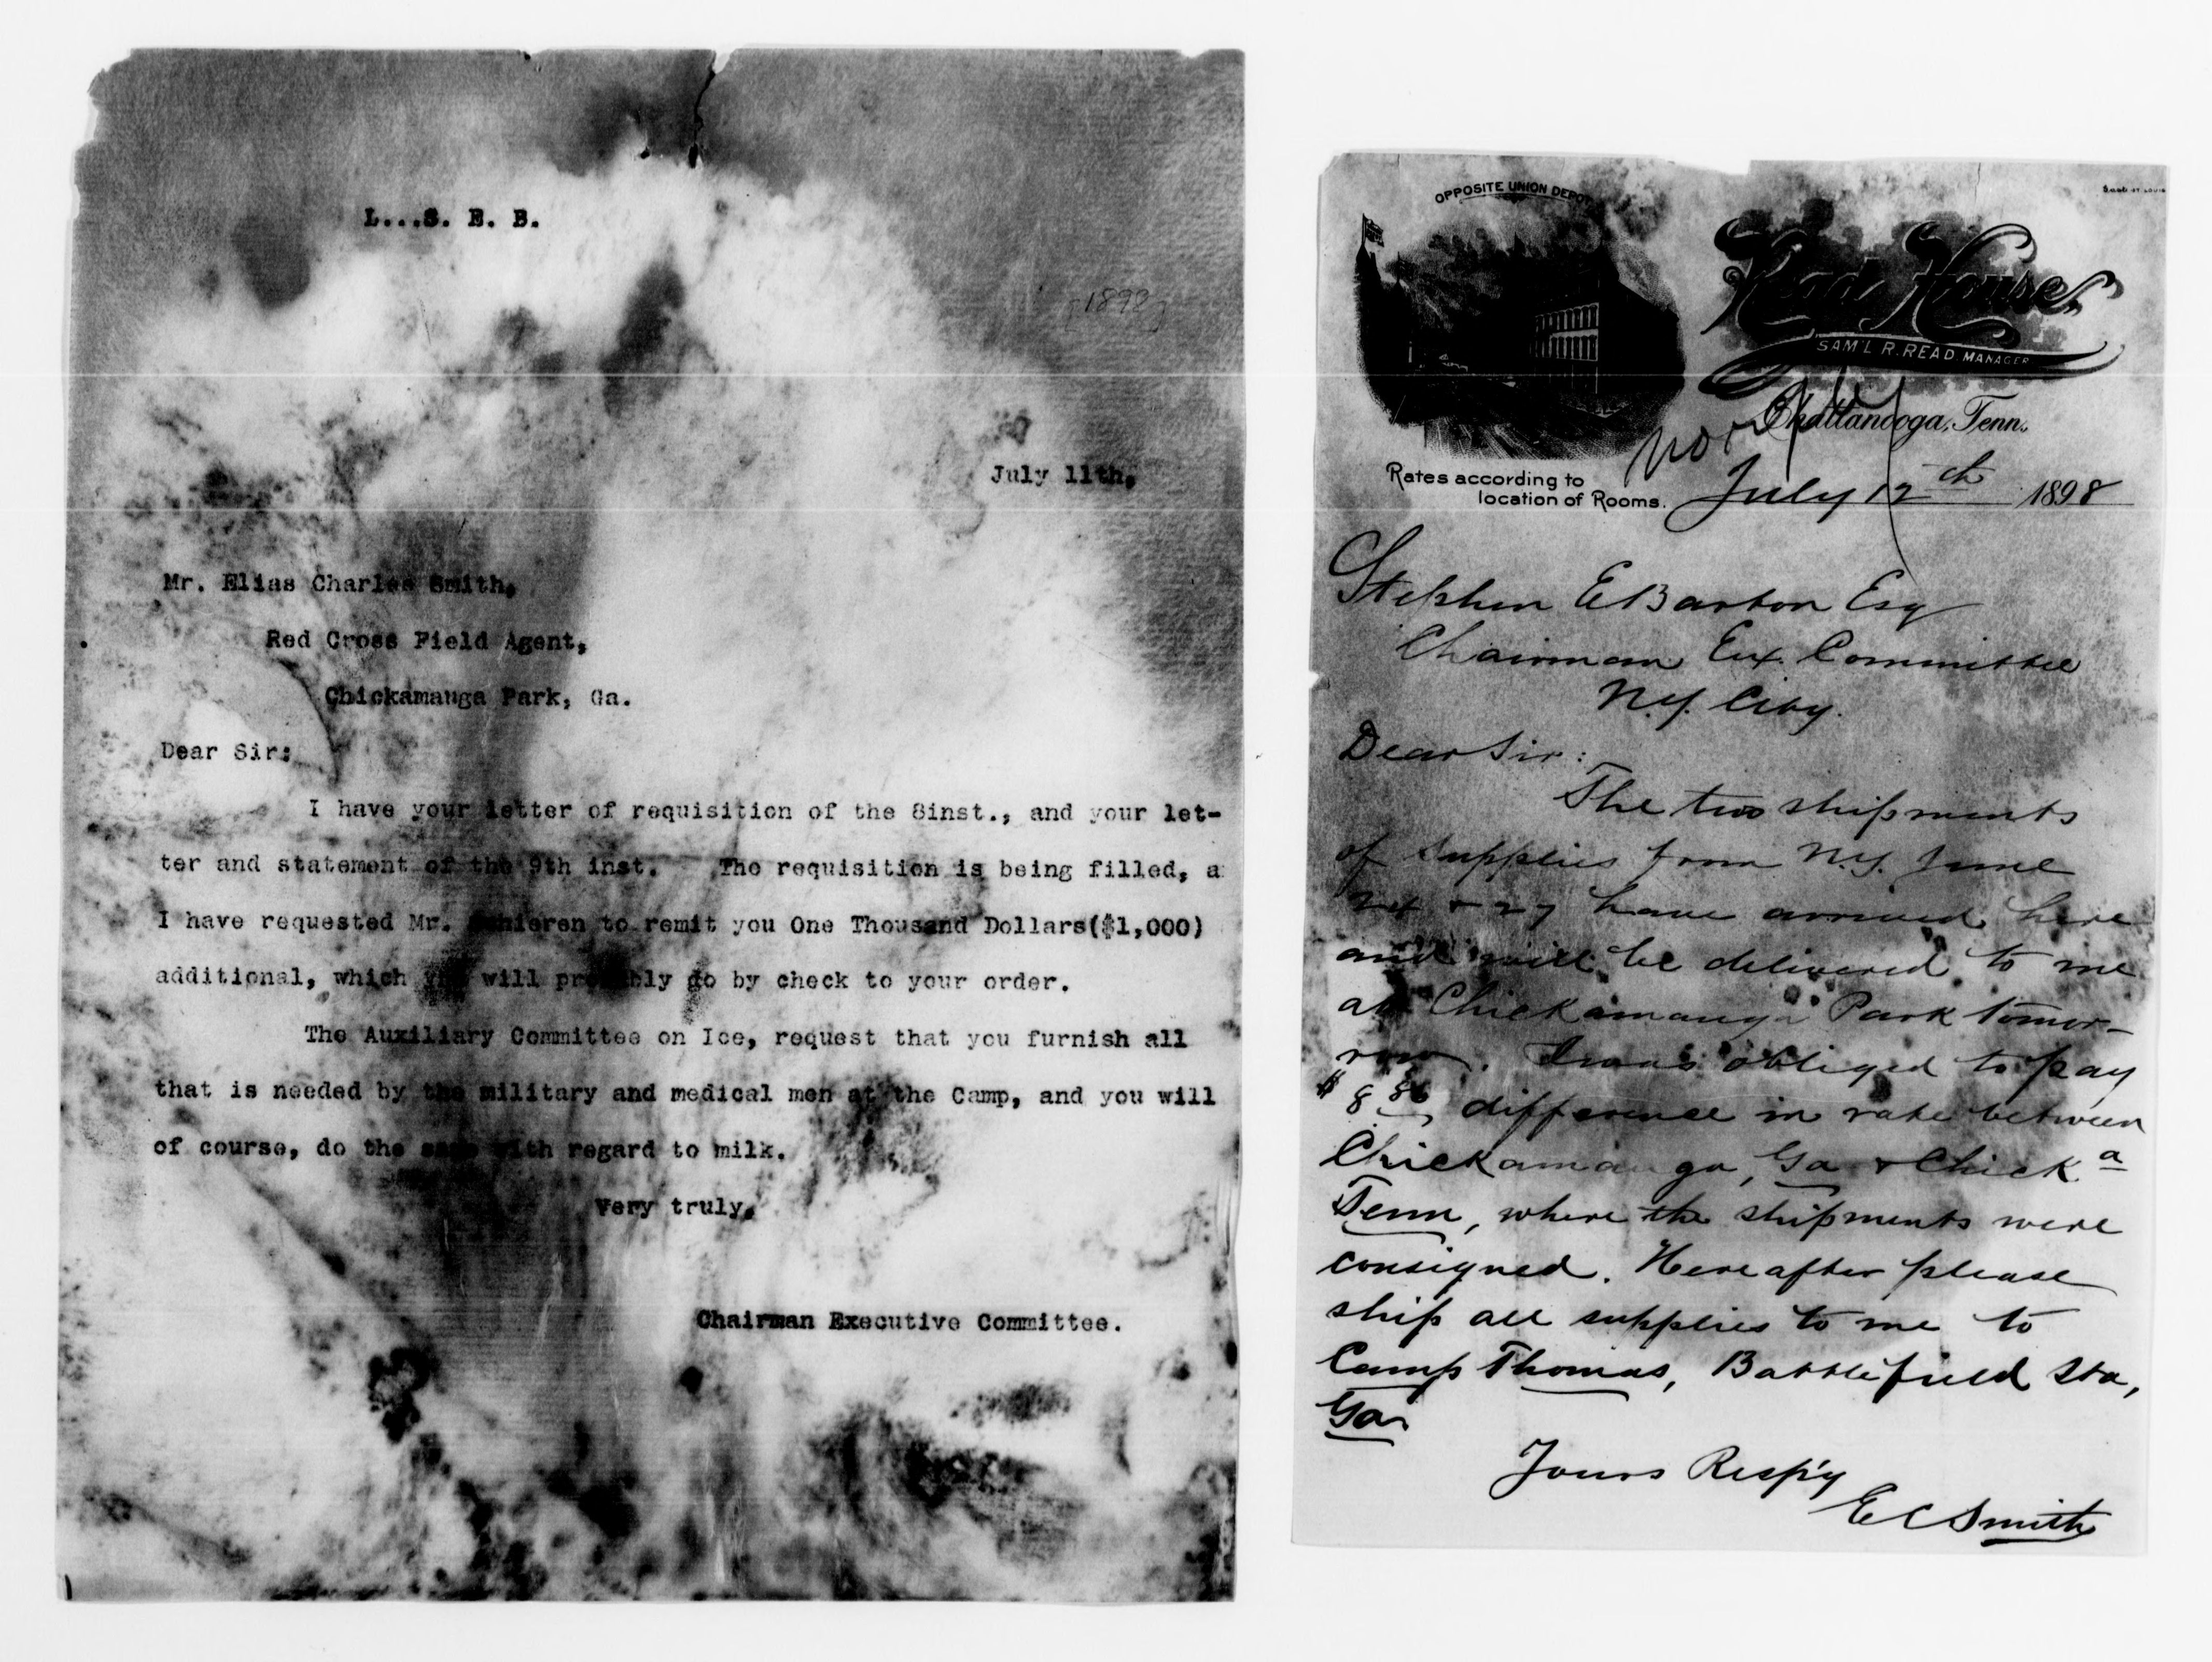 L...S. E. B.
[1898]
July 11th,
Mr. Elias Charles Smith,
Red Cross Field Agent,
Chickamauga Park, Ga.
Dear Sir:
I have your letter of requisition of the 8inst., and your let-
ter and statement of the 9th inst. The requisition is being filled, a
I have requested Mr. Schieren to remit you One Thousand Dollars($1,000)
additional, which will probably go by check to your order.
The Auxiliary Committee on Ice, request that you furnish all
that is needed by the military and medical men at the Camp, and you will
of course, do the same with regard to milk.
Very truly,
Chairman Executive Committee.
OPPOSITE UNION DEPOT
Read House,
SAM'L R. READ, MANAGER
Chattanooga, Tenn.
Rates according to
location of Rooms.
July 12th 1898
Stephen E Barton Esq
Chairman Ex. Committee
N.Y. City.
Dear Sir:
The two shipments
of supplies from N.Y. June
& 27 have arrived here
and will be delivered to me
at Chickamauga Park tomor-
row. I was obliged to pay
$8.86, difference in rate between
Chickamauga, Ga & Chicka
Tenn, where the shipments were
consigned. Hereafter please
ship all supplies to me to
Camp Thomas, Battlefield Sta,
Ga.
Yours Resp'y
E C Smith